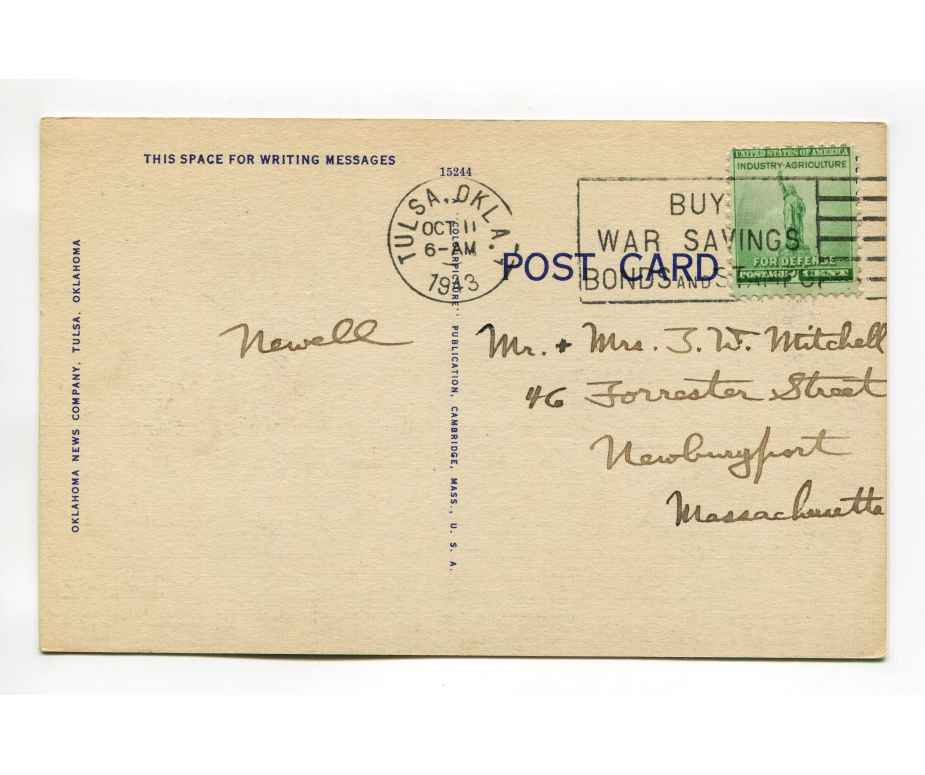 THIS SPACE FOR WRITING MESSAGES
15244
TULSA, OKLA. 1
OCT 11
6-AM
1943
BUY
WAR SAVINGS
BONDS AND STAMPS
UNITED STATES OF AMERICA
INDUSTRY-AGRICULTURE
FOR DEFENSE
POSTAGE 1 CENT
POST CARD
OKLAHOMA NEWS COMPANY, TULSA, OKLAHOMA
"COLOURPICTURE" PUBLICATION, CAMBRIDGE, MASS., U. S. A.
Newell
Mr. + Mrs. J. W. Mitchell
46 Forrester Street
Newburyport
Massachusetts